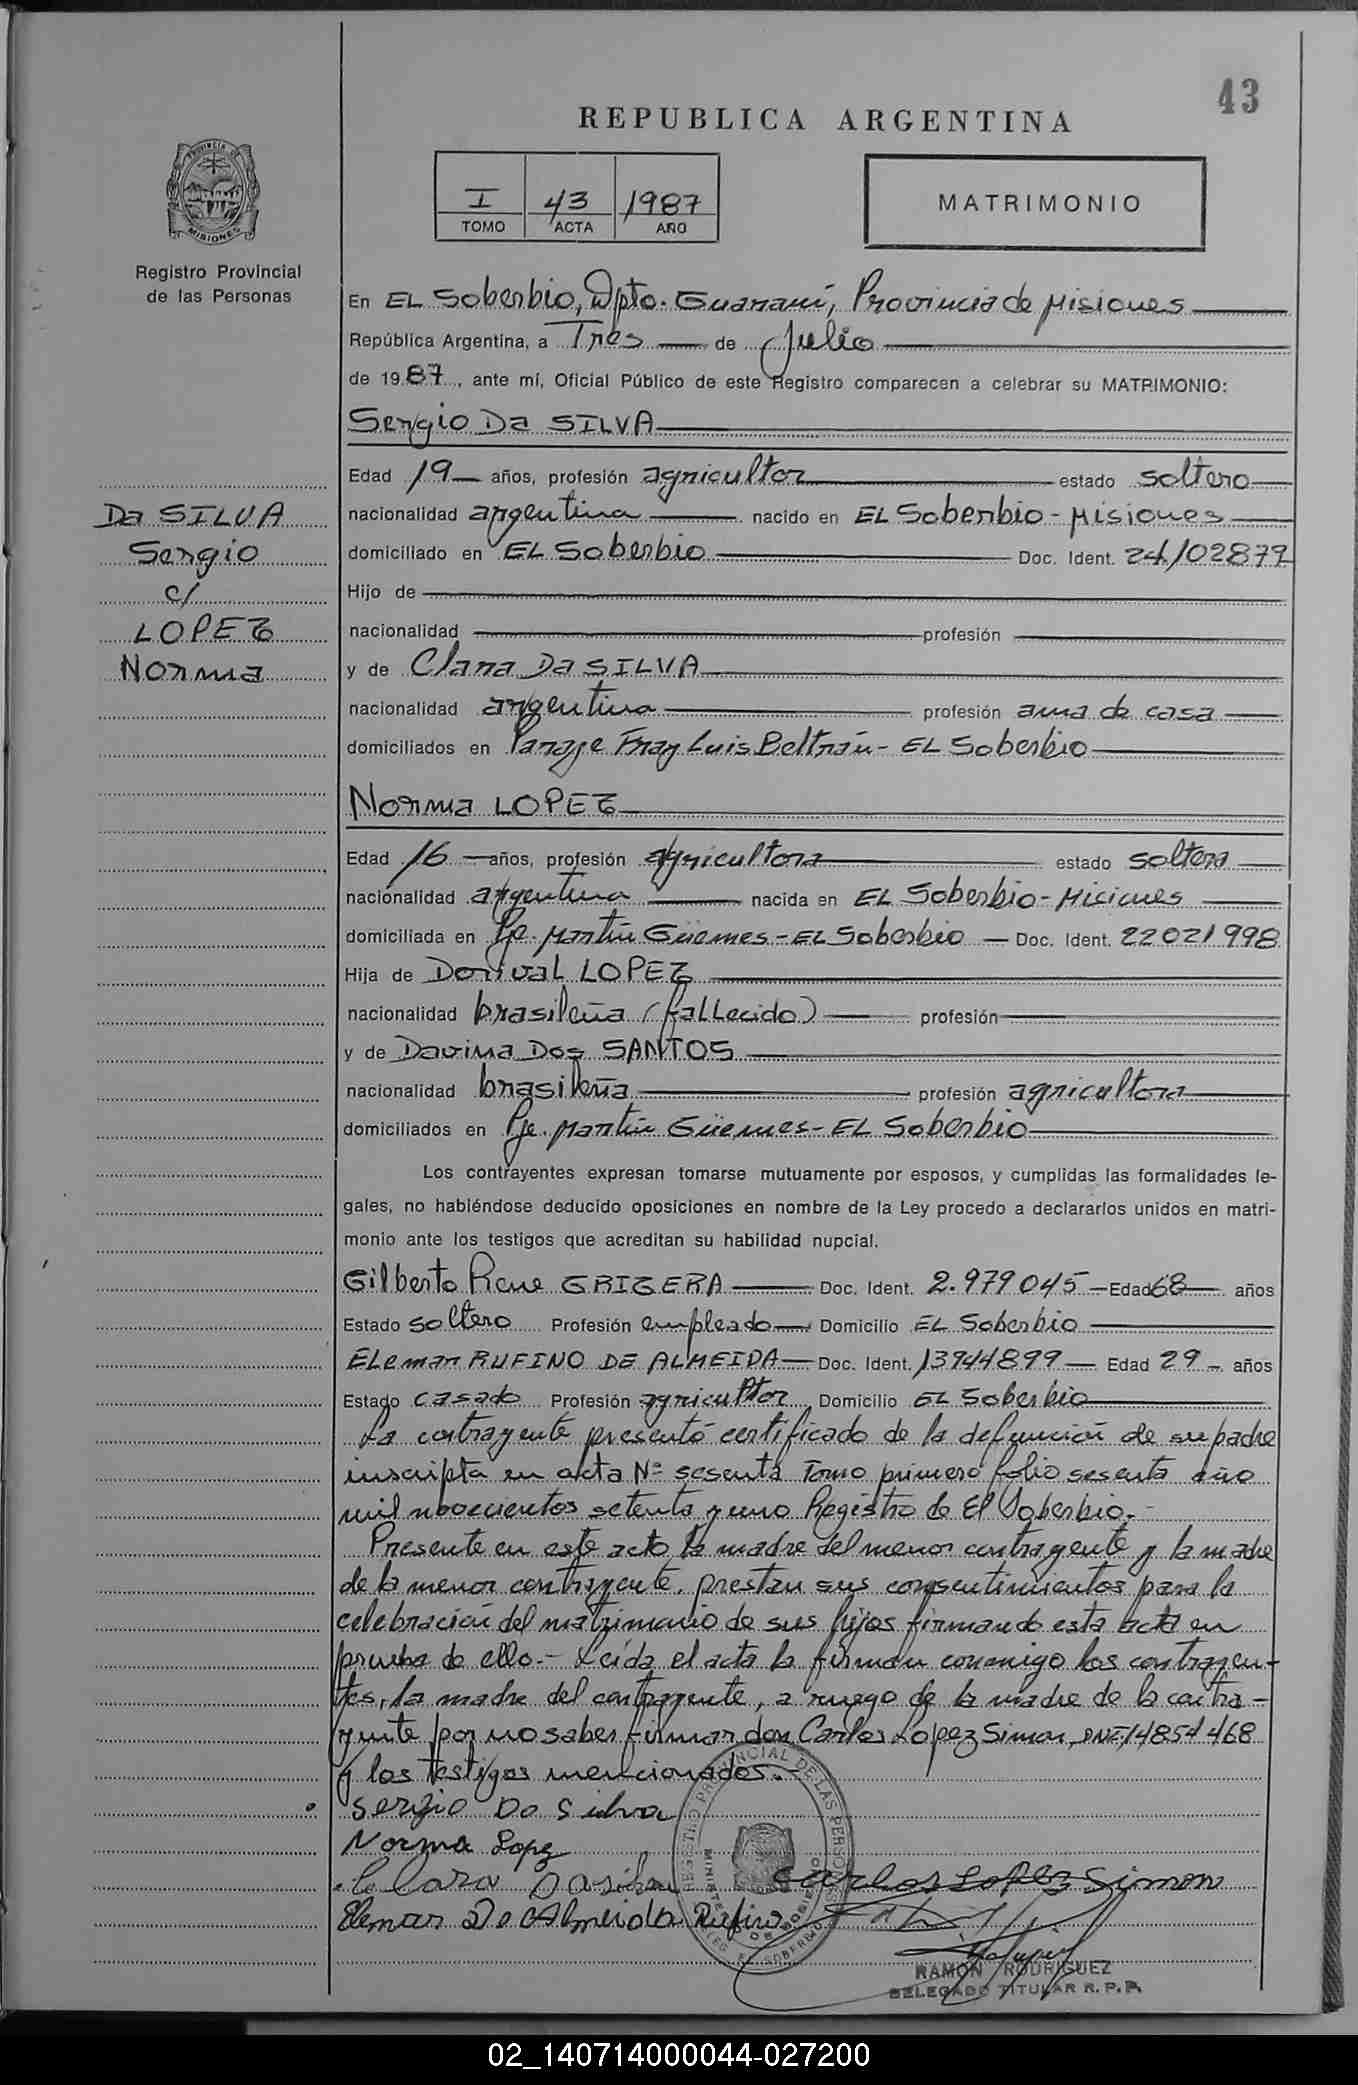 43
REPUBLICA ARGENTINA
I 43 1987
TOMO ACTA AÑO
MATRIMONIO
PROVINCIA DE
MISIONES
Registro Provincial
de las Personas
Da SILVA
Sergio
c/
LOPEZ
Norma
En EL Soberbio, Dpto. Guaraní, Provincia de Misiones
República Argentina, a Tres de Julio
de 1987, ante mí, Oficial Público de este Registro comparecen a celebrar su MATRIMONIO:
Sergio Da SILVA
Edad 19 años, profesión agricultor estado soltero
nacionalidad argentina nacido en EL Soberbio - Misiones
domiciliado en EL Soberbio Doc. Ident. 24.102879
Hijo de
nacionalidad profesión
y de Clara Da SILVA
nacionalidad argentina profesión ama de casa
domiciliados en Paraje Fray Luis Beltrán - EL Soberbio
Norma LOPEZ
Edad 16 años, profesión agricultora estado soltera
nacionalidad argentina nacida en EL Soberbio - Misiones
domiciliada en Pje. Martín Güemes - EL Soberbio Doc. Ident. 22021998
Hija de Dorival LOPEZ
nacionalidad brasileña (fallecido) profesión
y de Davina Dos SANTOS
nacionalidad brasileña profesión agricultora
domiciliados en Pje. Martín Güemes - EL Soberbio
Los contrayentes expresan tomarse mutuamente por esposos, y cumplidas las formalidades le-
gales, no habiéndose deducido oposiciones en nombre de la Ley procedo a declararlos unidos en matri-
monio ante los testigos que acreditan su habilidad nupcial.
Gilberto Rene GRIGERA Doc. Ident. 2.979045 Edad 68 años
Estado soltero Profesión empleado Domicilio EL Soberbio
ELemar RUFINO DE ALMEIDA Doc. Ident. 13944899 Edad 29 años
Estado casado Profesión agricultor Domicilio EL Soberbio
La contrayente presentó certificado de la defunción de su padre
inscripta en acta Nº sesenta Tomo primero folio sesenta año
mil novecientos setenta y uno Registro de El Soberbio.-
Presente en este acto la madre del menor contrayente y la madre
de la menor contrayente, prestan sus consentimientos para la
celebración del matrimonio de sus hijos firmando esta acta en
prueba de ello.- Leída el acta la firman conmigo los contrayen-
tes, la madre del contrayente, a ruego de la madre de la contra-
yente por no saber firmar don Carlos Lopez Simon, DNI 14854468
y los testigos mencionados.-
Sergio Da Silva
Norma Lopez
Clara Da silva Carlos Lopez Simon
Elemar De Almeida Rufino
REGISTRO PROVINCIAL DE LAS PERSONAS
RAMON RODRIGUEZ
DELEGADO TITULAR R. P. P.
02_140714000044-027200